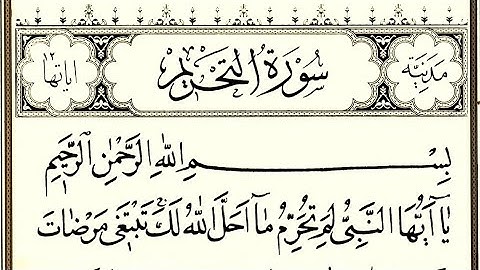 مَدَنِيَّة سُورَةُ التَّحْرِيمِ اٰيَاتُهَا ١٢
بِسْمِ اللّٰهِ الرَّحْمٰنِ الرَّحِيمِ
يَٓا اَيُّهَا النَّبِىُّ لِمَ تُحَرِّمُ مَٓا اَحَلَّ اللّٰهُ لَكَ تَبْتَغٖى مَرْضَاتَ